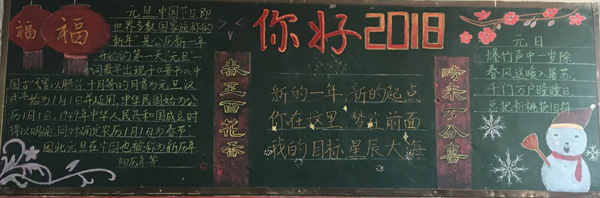 福
福
元旦，中国节日，即
世界多数国家通称的
"新年"，是公历新一年
开始的第一天。"元旦"一
词最早出现于《晋书》。中
国古代曾以腊月、十月等的月首为元旦，汉
武帝始为1月1日，中华民国始为公
历1月1日，1949年中华人民共和国成立时
得以明确，同时确定农历1月1日为春节，
因此元旦在中国也被称为新历年
阳历年等
你好2018
春至百花香
新的一年 新的起点
你在这里 梦在前面
我的目标 星辰大海
时来万分喜
元日
爆竹声中一岁除
春风送暖入屠苏
千门万户曈曈日
总把新桃换旧符